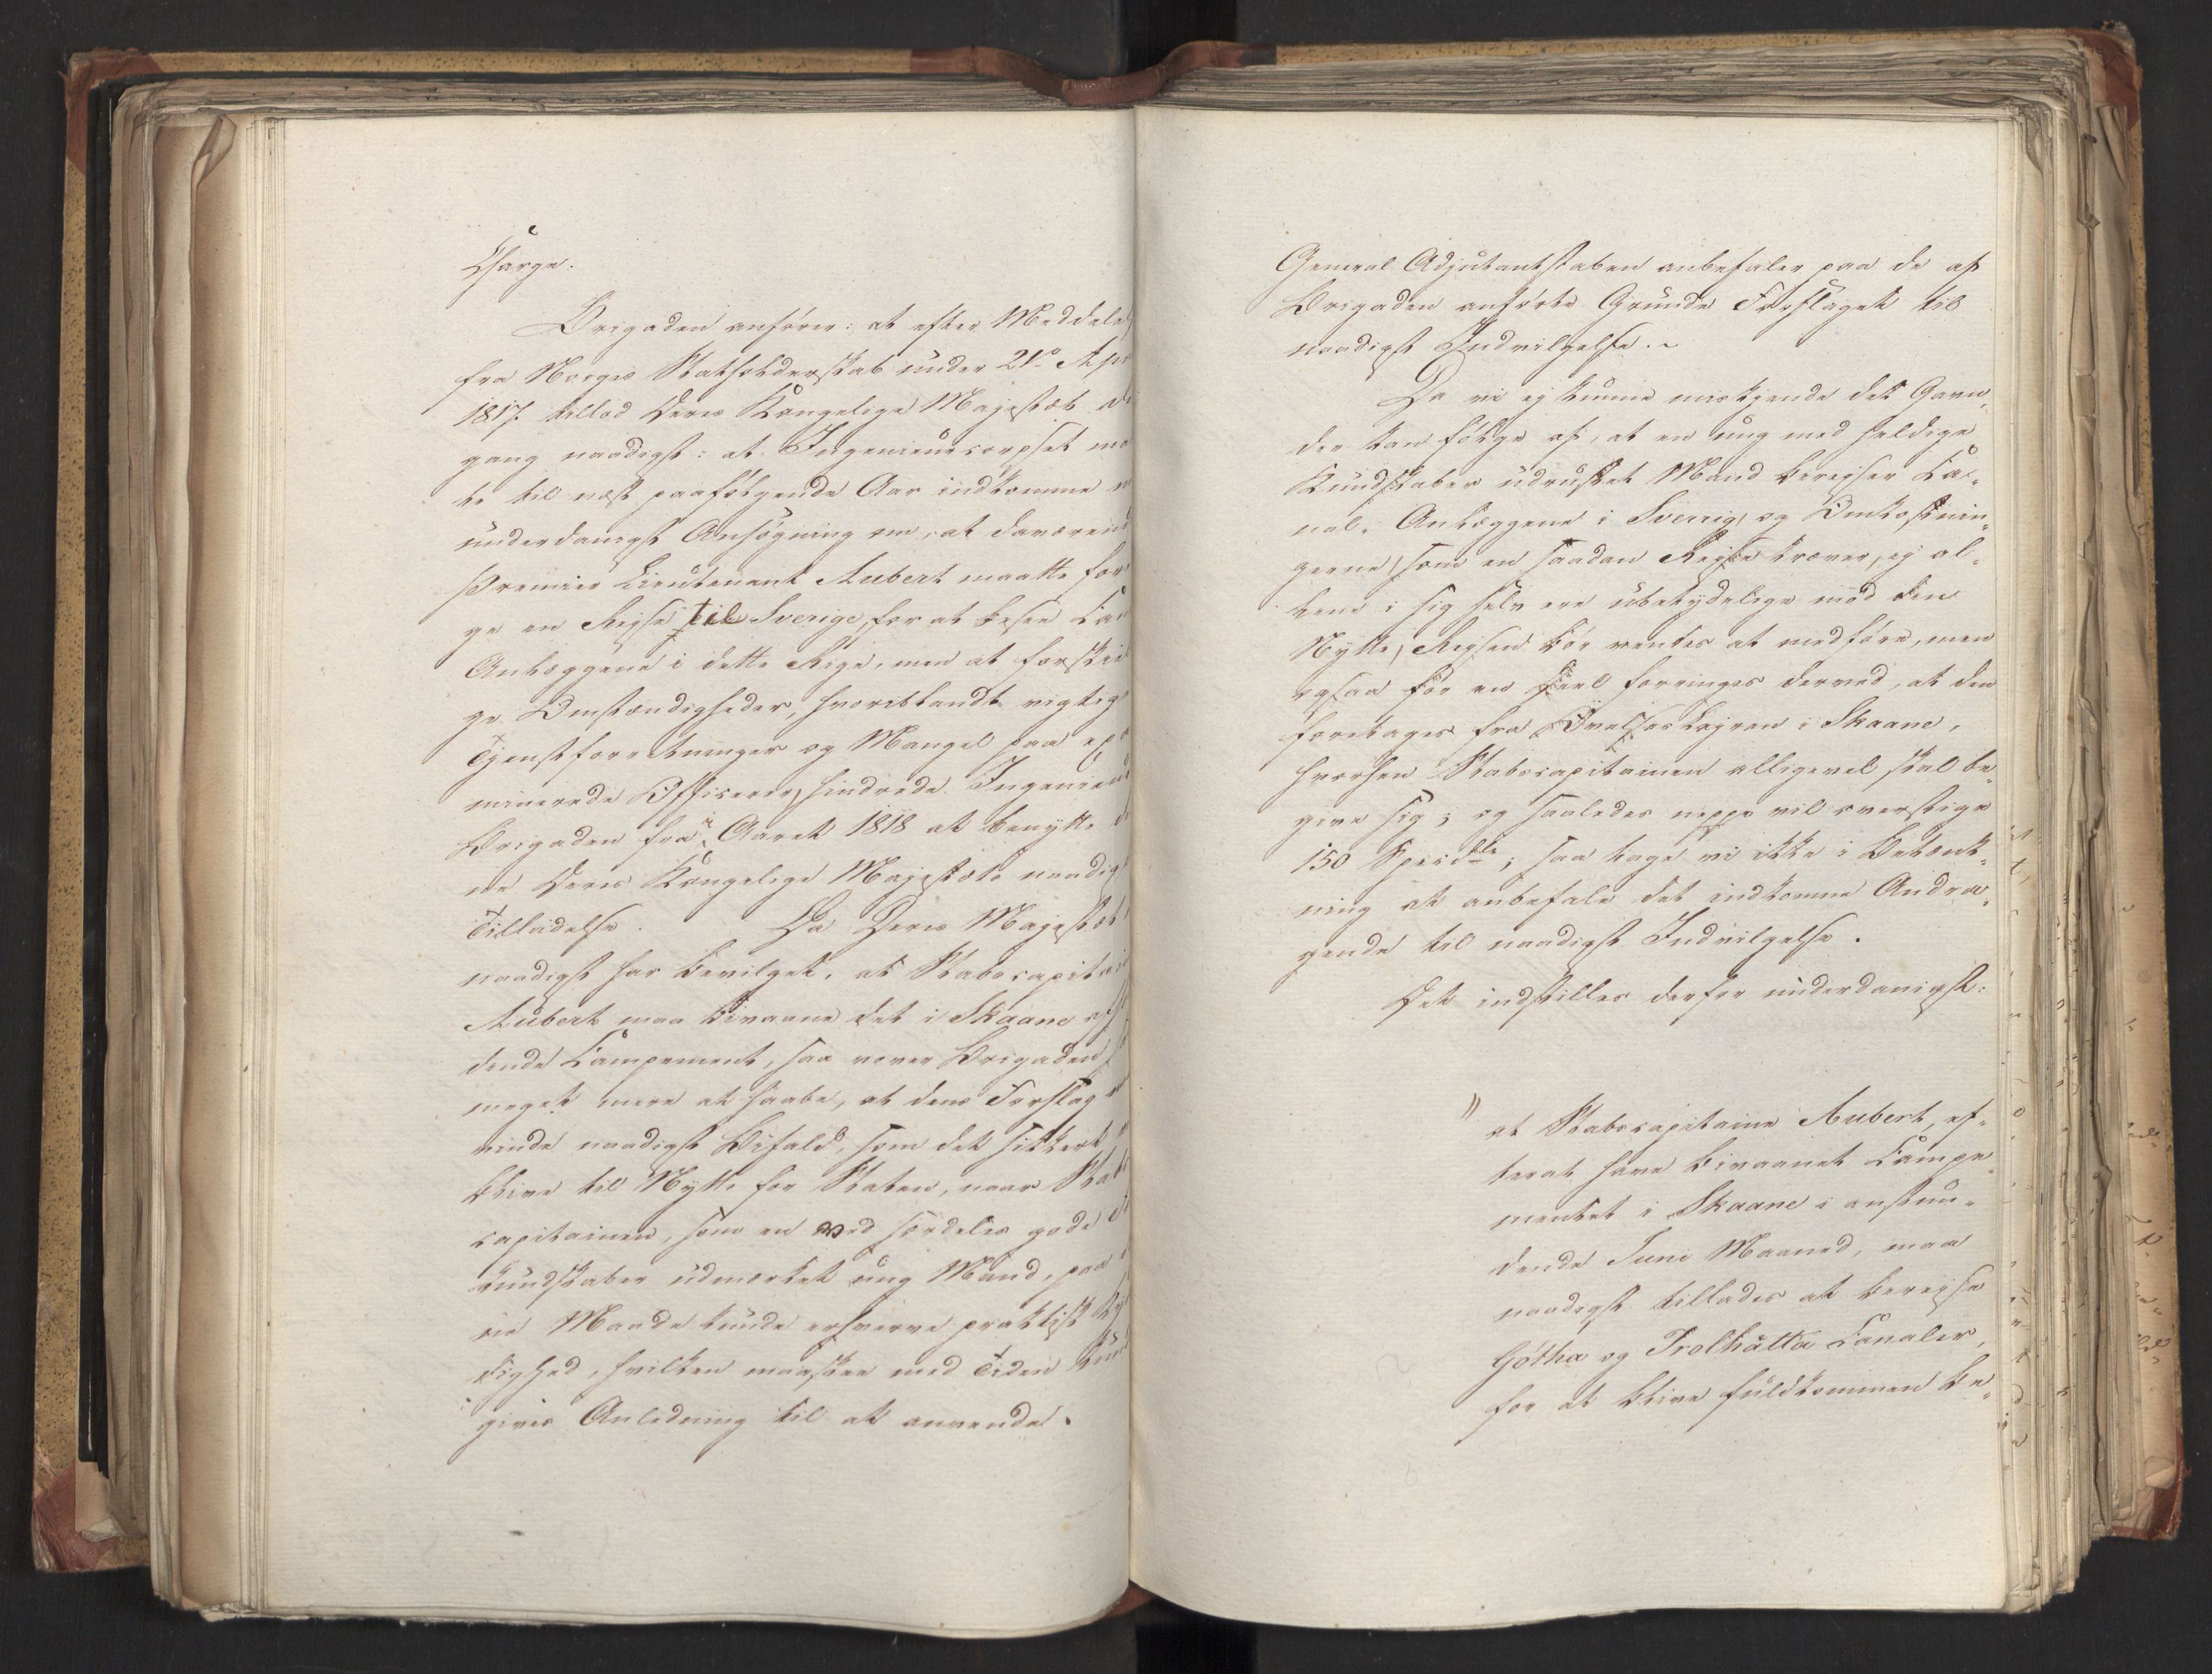 Charge.
Brigaden anfører: at efter Meddelel
fra Norges Statholderskab under 21de Apr
1817 tillod Deres Kongelige Majestæt di
gang naadigst: at Ingenieurcorpset maa
te til næst paafølgende Aar indkomme m
underdanigst Ansøgning om, at daværend
Premier Lieutenant Aubert maatte fore
ge en Reise til Sverige, for at besee Ca
Anlæggene i dette Rige, men at forskiel
ge Omstændigheder, hvoriblandt vigtige
Tjenstforretninger og Mangel paa ex
minerede Officerer, hindrede Ingenieur
Brigaden fra i Aaret 1818 at benytte de
ne Deres Kongelige Majestæts naadig
Tilladelse. Da Deres Majestæt
naadigst har bevilget, at Stabscapitai
Aubert maa bivaane det i Skaane afh
dende Campement, saa vover Brigaden
meget mere at haabe, at dens Forslag
vinde naadigst Bifald, som det sikkert
blive til Nytte for Staten, naar Stabs
capitainen, som en ved særdeles gode
Kundskaber udmærket ung Mand, paa
en Maade kunde erhverve praktisk Dy
dighed, hvilken maaskee med Tiden kun
gives Anledning til at anvende.
General Adjutantstaben anbefaler paa de af
Brigaden anførte Grunde Forslaget til
naadigst Indvilgelse.
Da vi ej kunne miskjende det Gavn,
der kan følge af, at en ung med heldige
Kundskaber udrustet Mand bereiser Ca-
nal-Anlæggene i Sverrig, og Omkostnin-
gerne, som en saadan Rejse kræver, ej al-
lene i sig selv ere ubetydelige mod den
Nytte, Reisen bør ventes at medføre, men
ogsaa for en Deel forringes derved, at den
foretages fra Øvelses Lejren i Skaane,
hvorhen Stabscapitainen alligevel skal be-
give sig; og saaledes neppe vil overstige
150 Speciedlr; saa tage vi ikke i Betænk-
ning at anbefale det indkomne Andra-
gende til naadigst Indvilgelse.
Det indstilles derfor underdanigst:
" at Stabscapitaine Aubert, ef-
terat have bivaanet Campe-
mentet i Skaane i anstun-
dende Juni Maaned, maa
naadigst tillades at bereise
Gøtha og Trolhätta Canaler,
for at blive fuldkommen be-